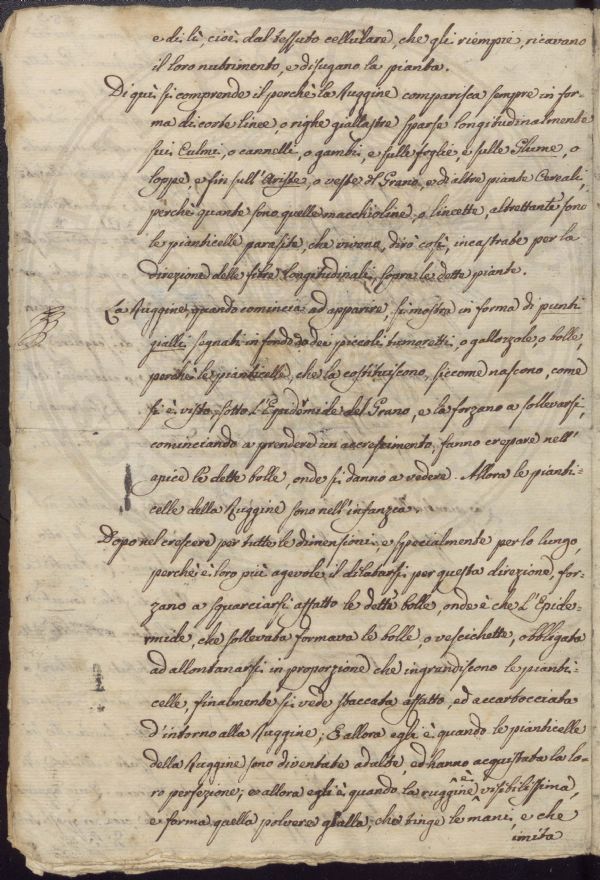 e di lì, cioè dal tessuto cellulare, che gli riempie, ricavano
il loro nutrimento, e disugano la pianta.
Di qui si comprende il perchè la Ruggine comparisca sempre in for-
ma di corte linee, o righe giallastre sparse longitudinalmente
sui Culmi, o cannelli, o gambi, e sulle foglie, e sulle Glume, o
loppe, e fin sull'Ariste, o veste del Grano, e di altre piante Cereali,
perchè quante sono quelle macchioline, o lincette, altrettante sono
le pianticelle parasite, che vivono, dirò così, incastrate per la
direzione delle fibre longitudinali, sopra le dette piante.
La Ruggine, quando comincia ad apparire, si mostra in forma di punti
gialli segnati in fondo da dei piccoli tumoretti, o gallozzole, o bolle,
perchè le pianticelle, che la costituiscono, siccome nascono, come
si è visto, sotto l'Epidermide del Grano, e la forzano a sollevarsi,
cominciando a prendere un accrescimento, fanno crepare nell'
apice le dette bolle, onde si danno a vedere. Allora le pianti-
celle della Ruggine sono nell'infanzia.
Dopo nel crescere per tutte le dimensioni, e specialmente per lo lungo,
perchè è loro più agevole il dilatarsi per questa direzione, for-
zano a squarciarsi affatto le dette bolle, onde è che l'Epider-
mide, che sollevata formava le bolle, o vescichette, obbligata
ad allontanarsi in proporzione che ingrandiscono le pianti-
celle, finalmente si vede staccata affatto, ed accartocciata
d'intorno alla Ruggine; E allora egli è quando le pianticelle
della Ruggine sono diventate adulte, ed hanno acquistata la lo-
ro perfezione; e allora egli è quando la ruggine è visibilissima,
e forma quella polvere gialla, che tinge le mani, e che
imita